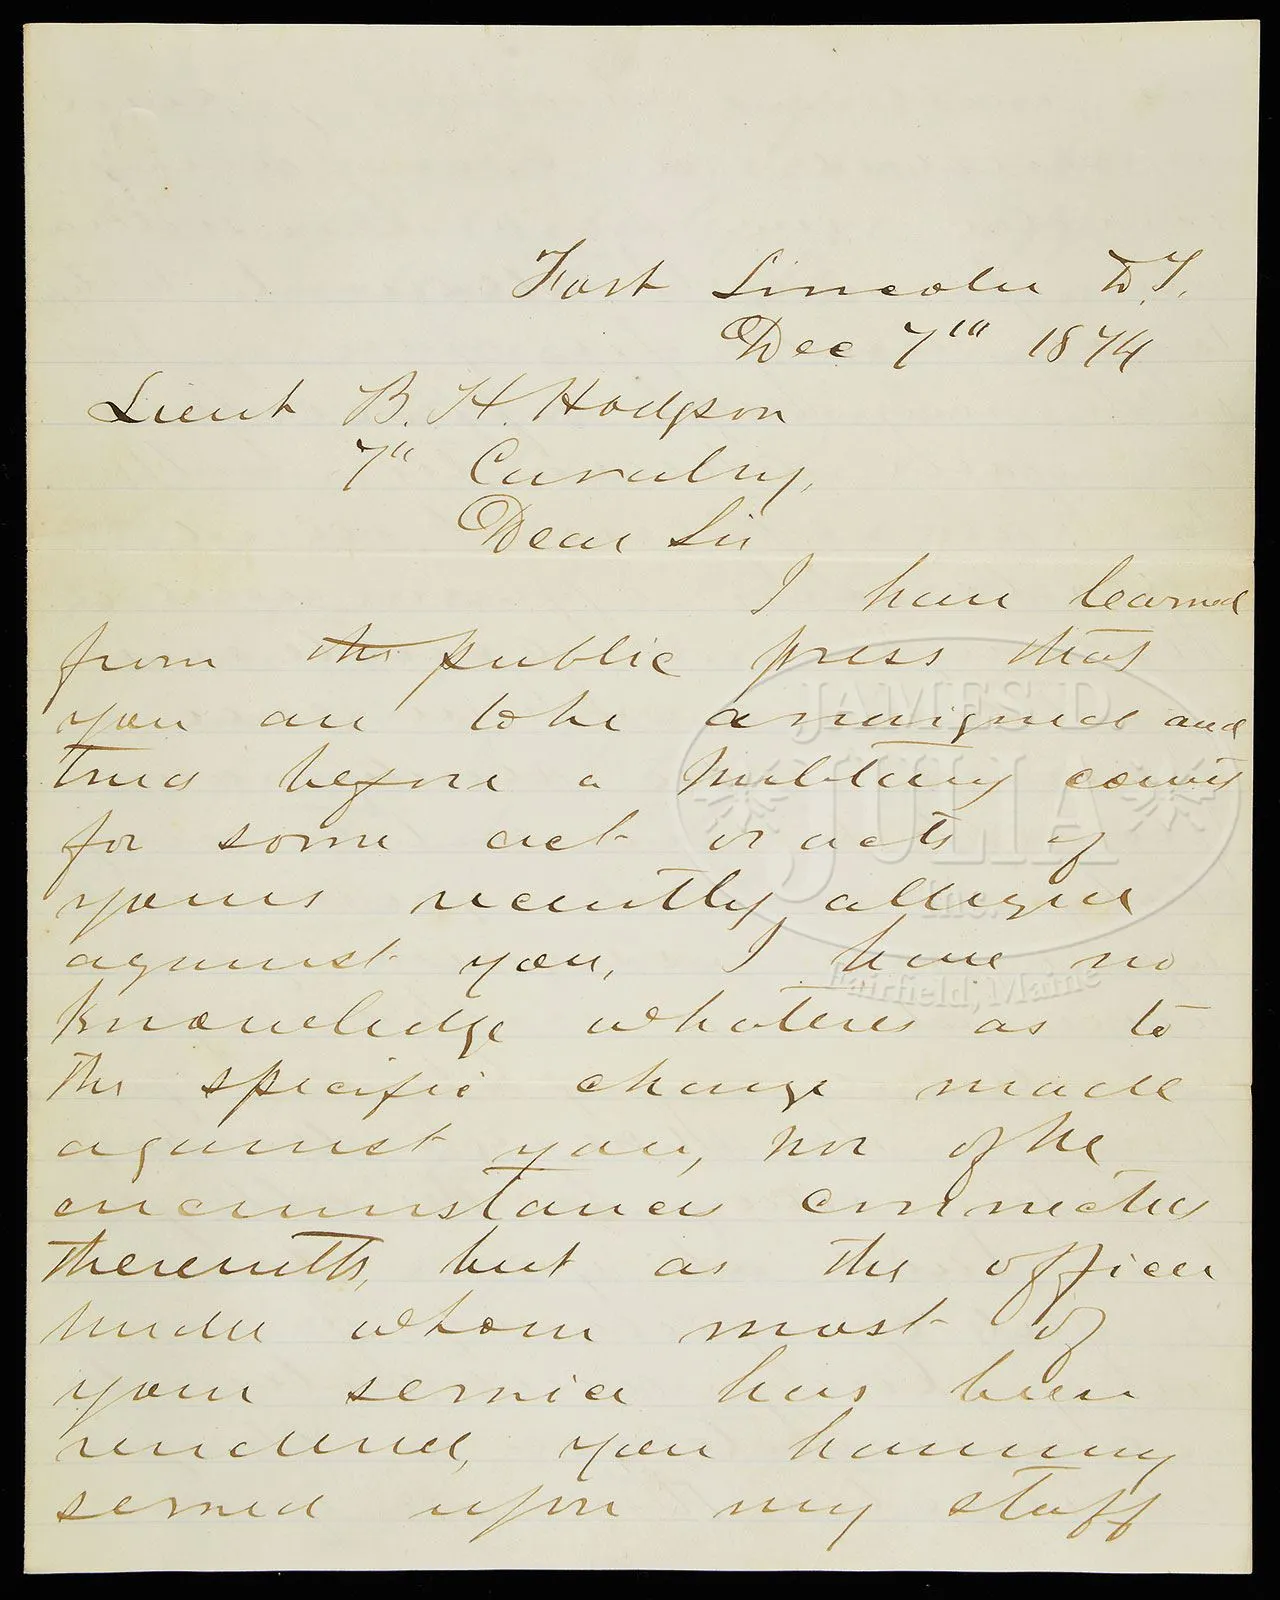 Fort Lincoln D.T.
Dec 7th 1874
Lieut B. H. Hodgson
7th Cavalry,
Dear Sir
I have learned
from the public press that
you are to be arraigned and
tried before a Military court
for some act or acts of
yours recently alleged
against you, I have no
knowledge whatever as to
the specific charge made
against you, nor of the
circumstances connected
therewith, but as the officer
under whom most of
your service has been
rendered, you having
served upon my staff
JAMES D.
JULIA
Inc.
Fairfield, Maine